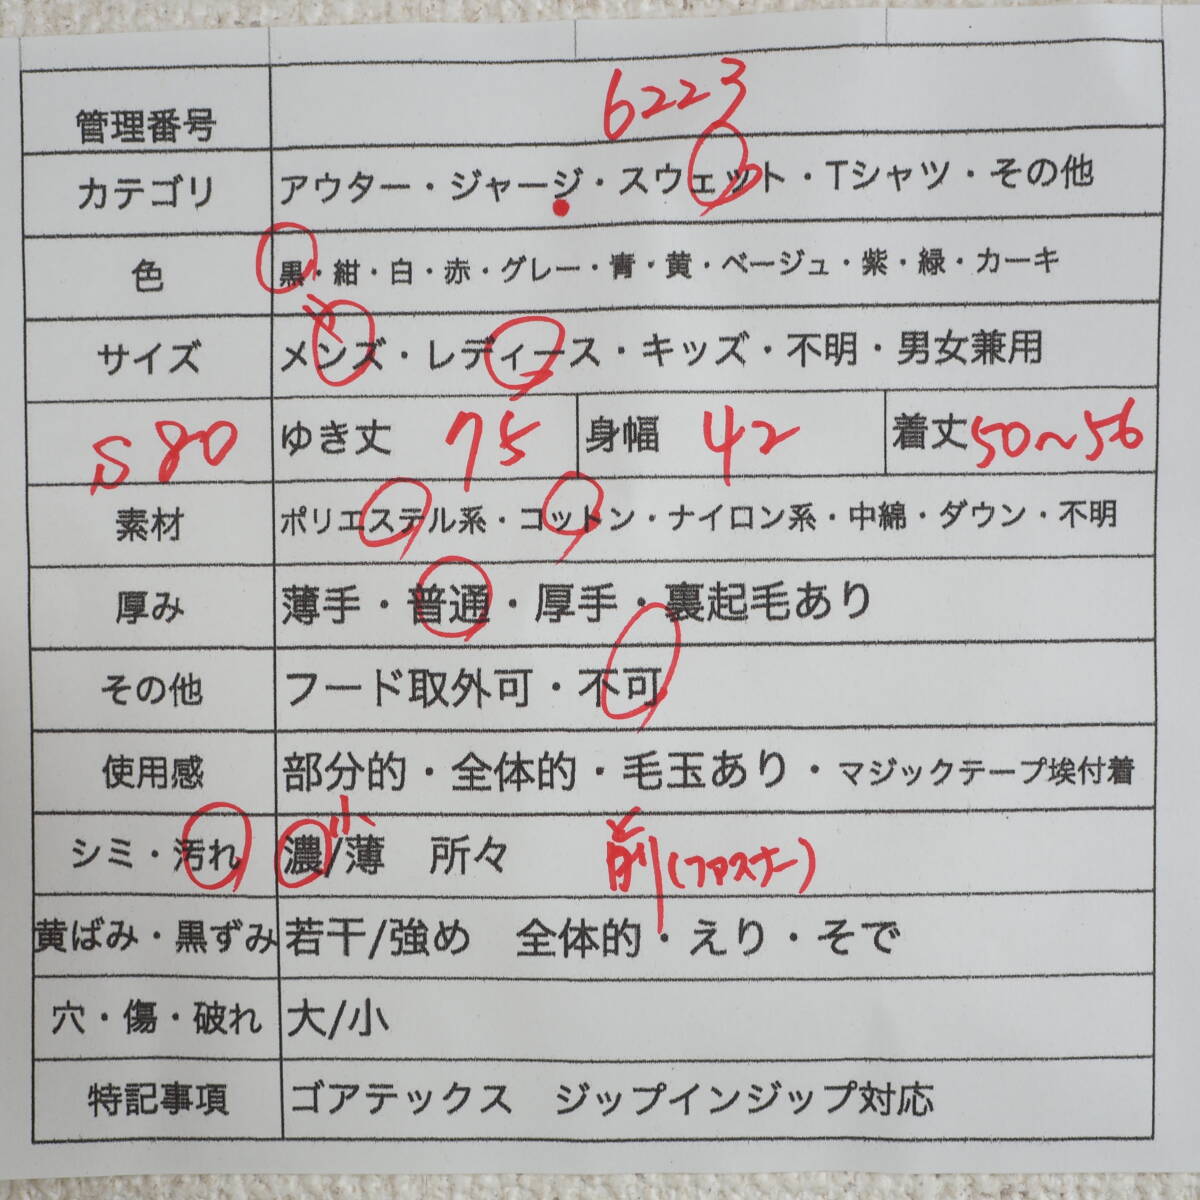 管理番号 6223
カテゴリ アウター・ジャージ・スウェット・Tシャツ・その他
色 黒・紺・白・赤・グレー・青・黄・ベージュ・紫・緑・カーキ
サイズ メンズ・レディース・キッズ・不明・男女兼用
S80 ゆき丈 75 身幅 42 着丈 50~56
素材 ポリエステル系・コットン・ナイロン系・中綿・ダウン・不明
厚み 薄手・普通・厚手・裏起毛あり
その他 フード取外可・不可
使用感 部分的・全体的・毛玉あり・マジックテープ埃付着
シミ・汚れ 濃/薄 小 所々 前(ファスナー)
黄ばみ・黒ずみ 若干/強め 全体的・えり・そで
穴・傷・破れ 大/小
特記事項 ゴアテックス ジップインジップ対応